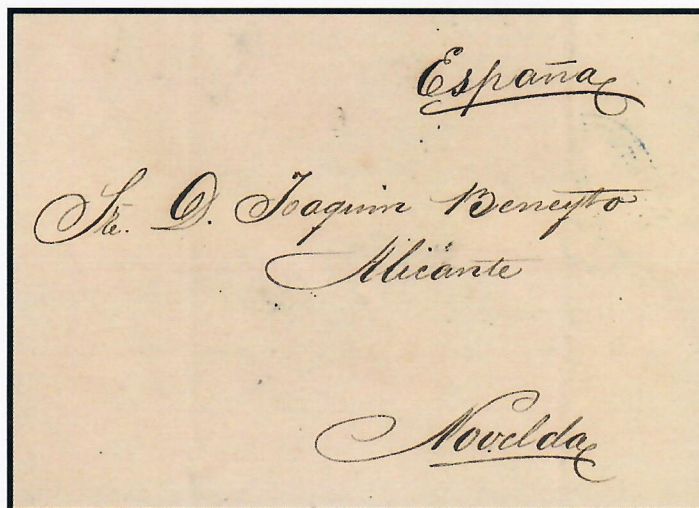 España
Sr. D. Joaquin Beneyto
Alicante
Novelda